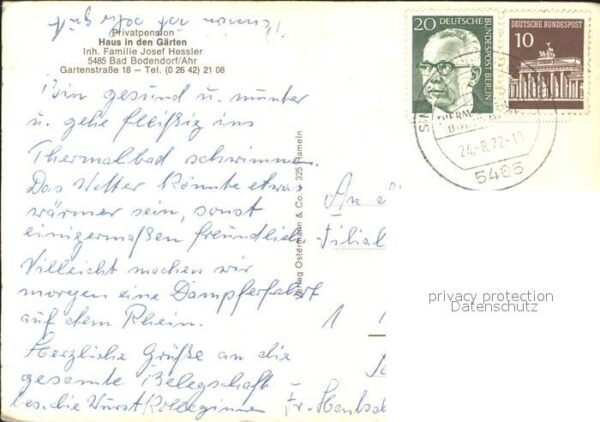 Privatpension
Haus in den Gärten
Inh. Familie Josef Hessler
5485 Bad Bodendorf/Ahr
Gartenstraße 18 – Tel. (0 26 42) 21 08
Bin gesund u. munter
u. gehe fleißig ins
Thermalbad schwimmen.
Das Wetter könnte etwas
wärmer sein, sonst
einigermaßen freundlich.
Vielleicht machen wir
morgen eine Dampferfahrt
auf dem Rhein.
Herzliche Grüße an die
gesamte Belegschaft
bes. die Wurst Kolleginnen
u. Fr.
Verlag Ostermann & Co., 325 Hameln
20
DEUTSCHE BUNDESPOST BERLIN
DEUTSCHE BUNDESPOST
10
24.-8.72-1
5485
An
Filial
1 1
privacy protection
Datenschutz